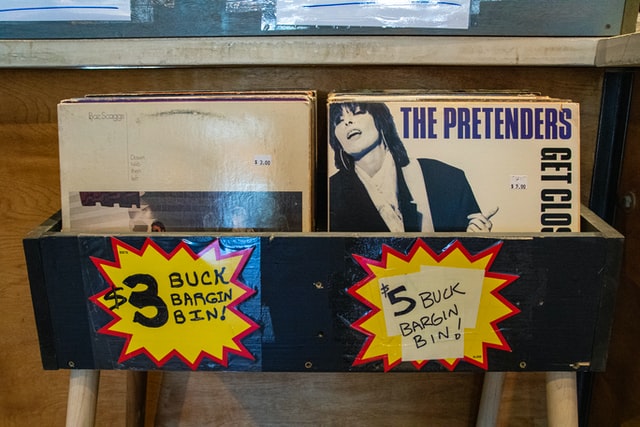 Boz Scaggs
Down
two
then
left
$ 3.00
THE PRETENDERS
GET CLOS
$3 BUCK
BARGIN
BIN!
$5 BUCK
BARGIN
BIN!